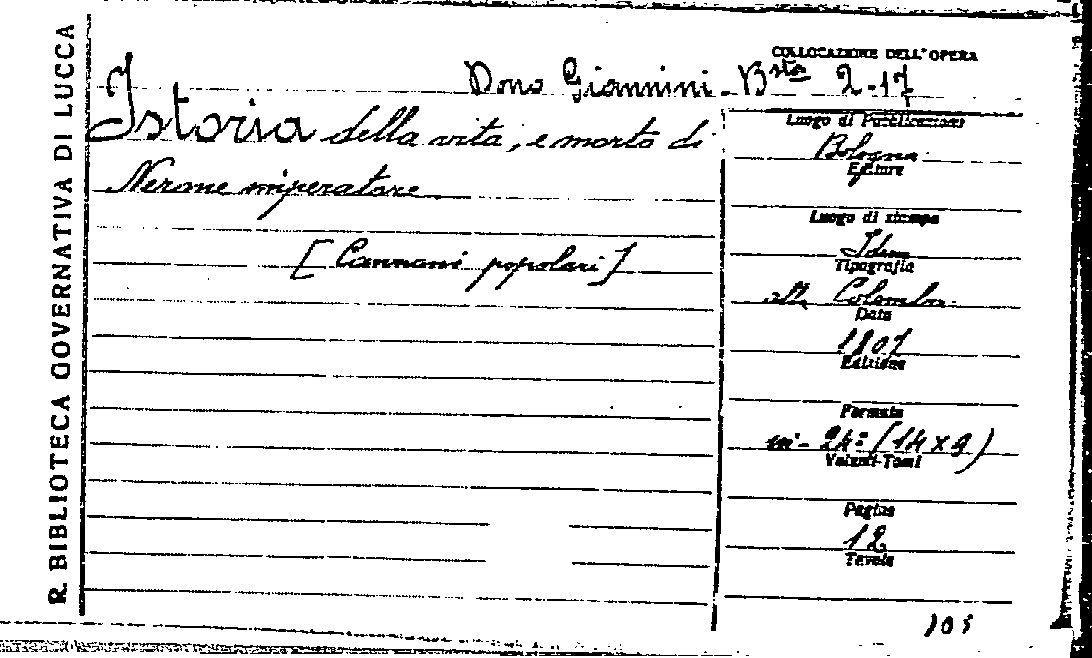 R. BIBLIOTECA GOVERNATIVA DI LUCCA
COLLOCAZIONE DELL'OPERA
Dono Giannini - Bsta 2-17
Istoria della vita, e morte di
Nerone imperatore
[Canzoni popolari]
Luogo di Pubblicazione
Bologna
Editore
Luogo di stampa
Idem
Tipografia
alla Colomba
Data
1807
Edizione
Formato
in-24º (14 x 9)
Volumi-Tomi
Pagine
12
Tavole